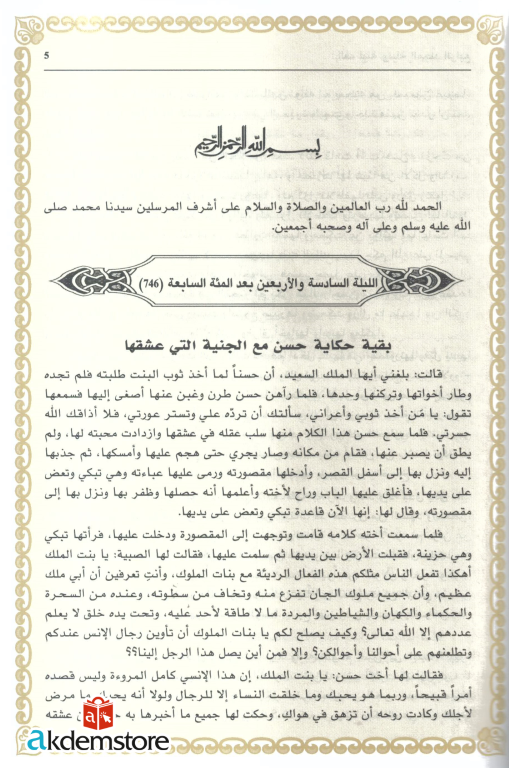 5
بسم الله الرحمن الرحيم
الحمد لله رب العالمين والصلاة والسلام على أشرف المرسلين سيدنا محمد صلى
الله عليه وسلم وعلى آله وصحبه أجمعين.
الليلة السادسة والأربعين بعد المئة السابعة (746)
بقية حكاية حسن مع الجنية التي عشقها
قالت: بلغني أيها الملك السعيد، أن حسناً لما أخذ ثوب البنت طلبته فلم تجده
وطار أخواتها وتركنها وحدها، فلما رآهن حسن طرن وغبن عنها أصغى إليها فسمعها
تقول: يا مَن أخذ ثوبي وأعراني، سألتك أن تردّه علي وتستر عورتي، فلا أذاقك الله
حسرتي. فلما سمع حسن هذا الكلام منها سلب عقله في عشقها وازدادت محبته لها، ولم
يطق أن يصبر عنها، فقام من مكانه وصار يجري حتى هجم عليها وأمسكها، ثم جذبها
إليه ونزل بها إلى أسفل القصر، وأدخلها مقصورته ورمى عليها عباءته وهي تبكي وتعض
على يديها، فأغلق عليها الباب وراح لأخته وأعلمها أنه حصلها وظفر بها ونزل بها إلى
مقصورته، وقال لها: إنها الآن قاعدة تبكي وتعض على يديها.
فلما سمعت أخته كلامه قامت وتوجهت إلى المقصورة ودخلت عليها، فرأتها تبكي
وهي حزينة، فقبلت الأرض بين يديها ثم سلمت عليها، فقالت لها الصبية: يا بنت الملك
أهكذا تفعل الناس مثلكم هذه الفعال الرديئة مع بنات الملوك، وأنتِ تعرفين أن أبي ملك
عظيم، وأن جميع ملوك الجان تفزع منه وتخاف من سطوته، وعنده من السحرة
والحكماء والكهان والشياطين والمردة ما لا طاقة لأحد عليه، وتحت يده خلق لا يعلم
عددهم إلا الله تعالى؟ وكيف يصلح لكم يا بنات الملوك أن تأوين رجال الإنس عندكم
وتطلعنهم على أحوالنا وأحوالكن؟ وإلا فمن أين يصل هذا الرجل إلينا؟؟
فقالت لها أخت حسن: يا بنت الملك، إن هذا الإنسي كامل المروءة وليس قصده
أمراً قبيحاً، وربما هو يحبك وما خلقت النساء إلا للرجال ولولا أنه يحبك ما مرض
لأجلك وكادت روحه أن تزهق في هواكِ، وحكت لها جميع ما أخبرها به عشقه
akdemstore